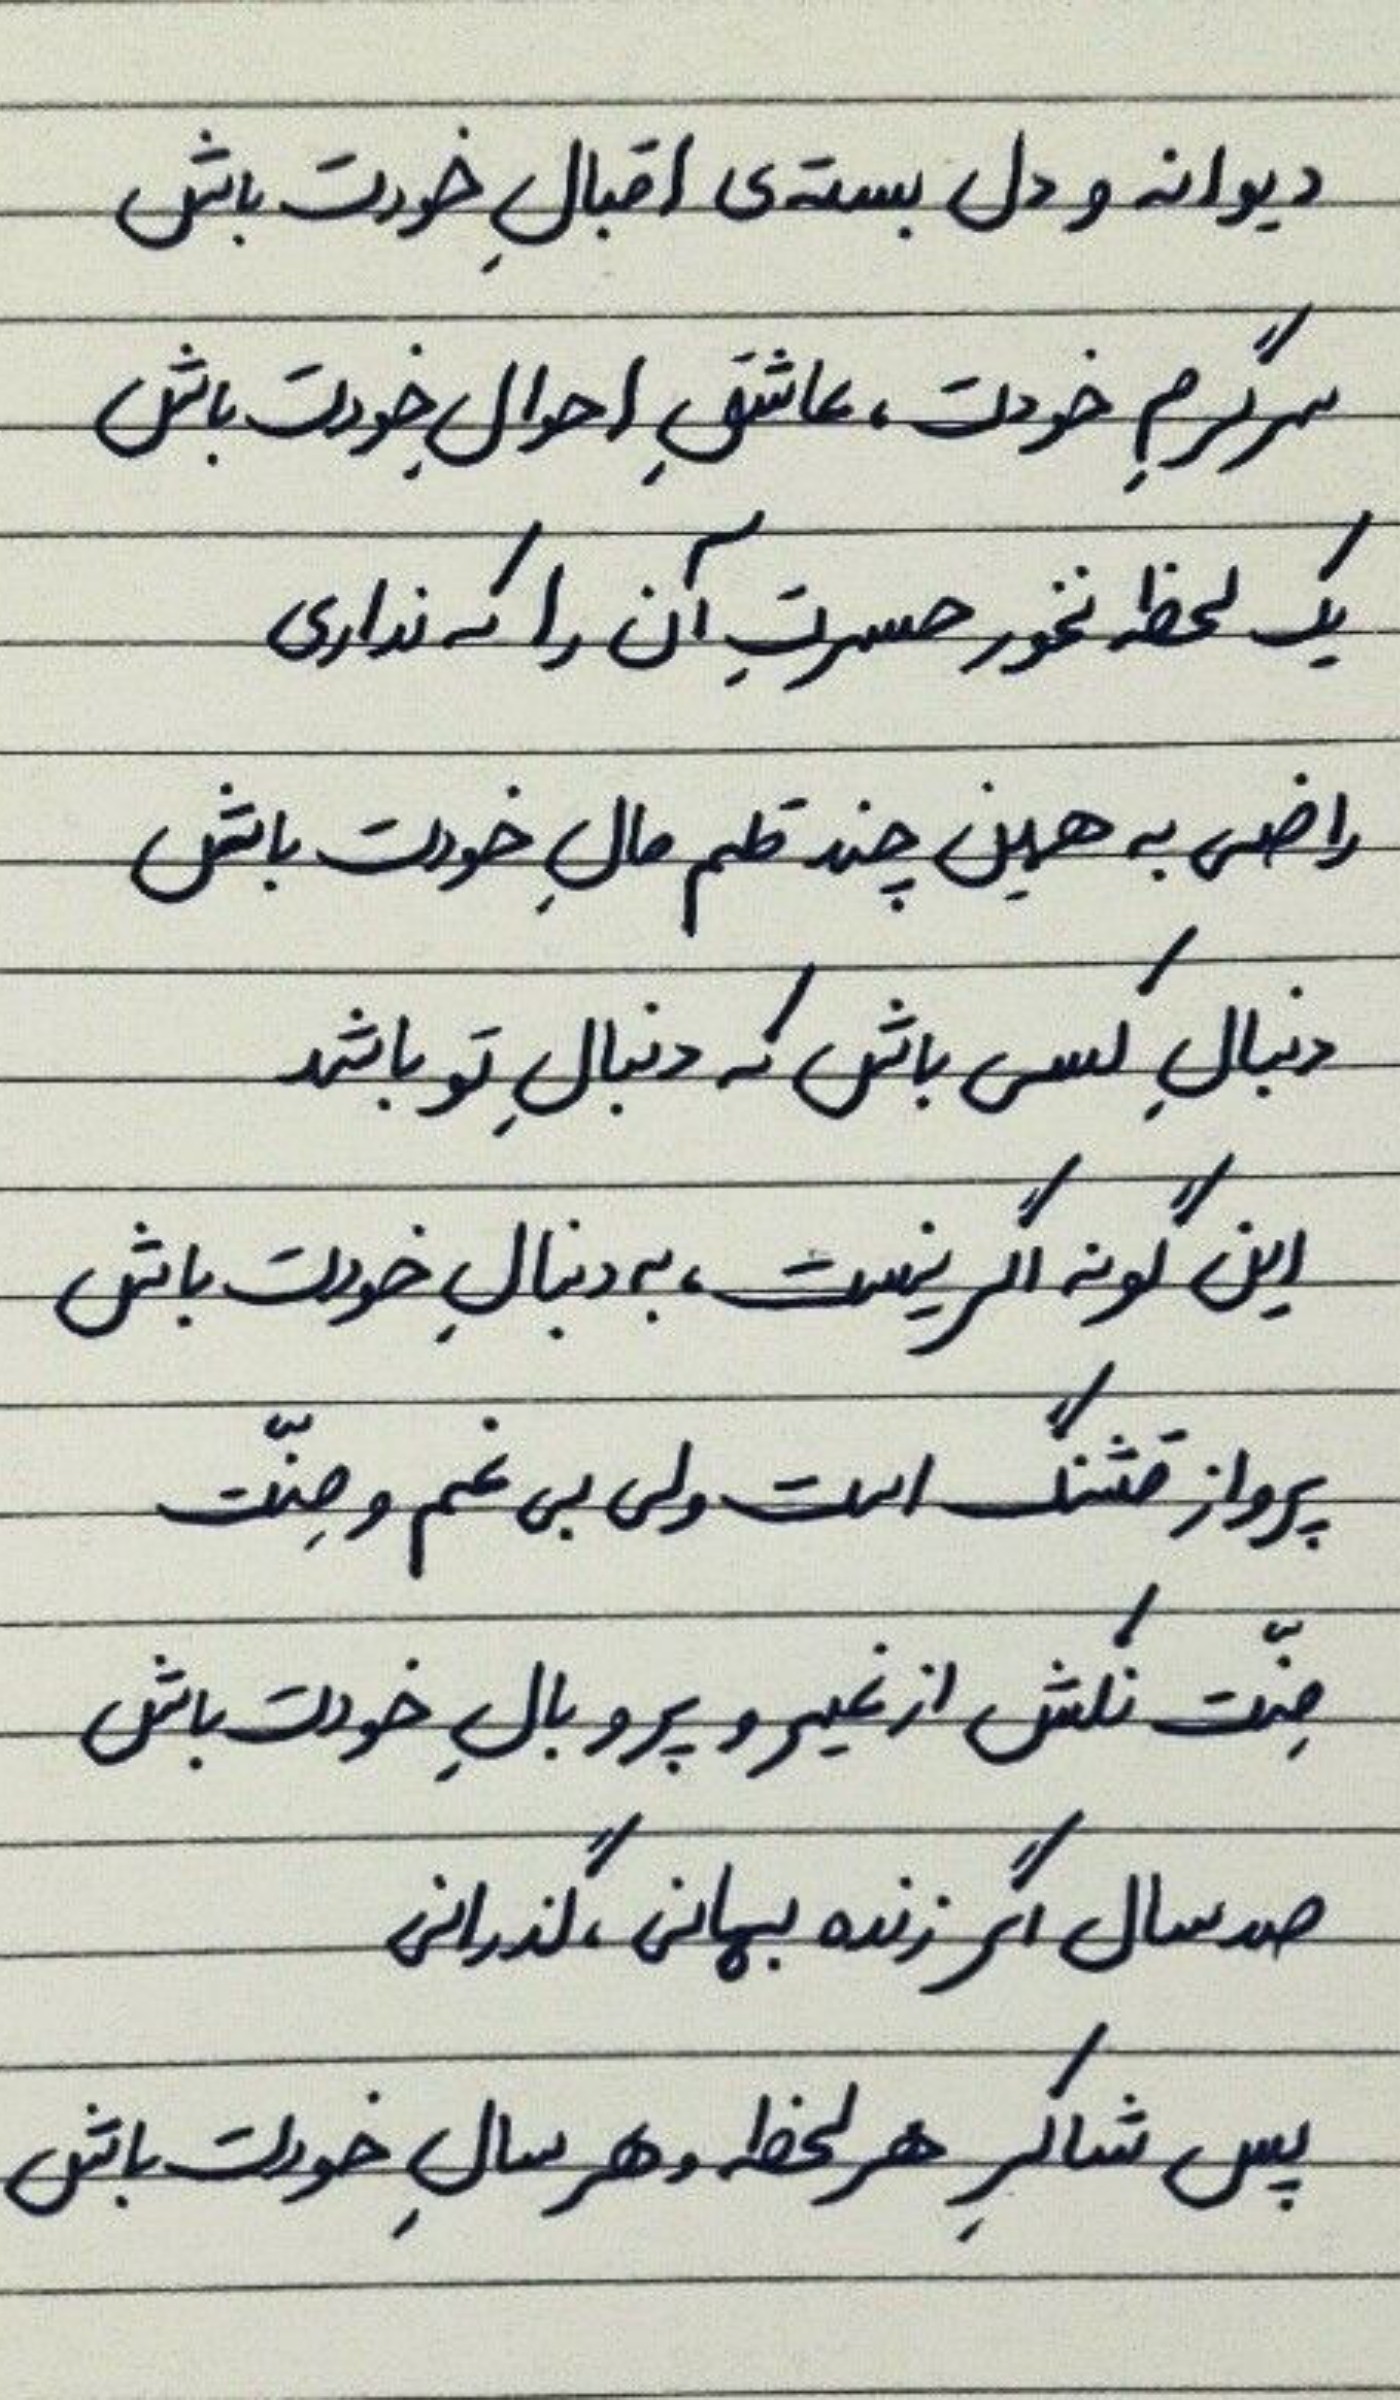 دیوانه و دل بسته‌ی اقبالِ خودت باش
سرگرمِ خودت، عاشقِ احوالِ خودت باش
یک لحظه نخور حسرتِ آن را که نداری
راضی به همین چند قلم مالِ خودت باش
دنبالِ کسی باش که دنبالِ تو باشد
این گونه اگر نیست، به دنبالِ خودت باش
پرواز قشنگ است ولی بی غم و مِنّت
مِنّت نکش از غیر و پر و بالِ خودت باش
صد سال اگر زنده بمانی، گذرانی
پس شاکرِ هر لحظه و هر سالِ خودت باش